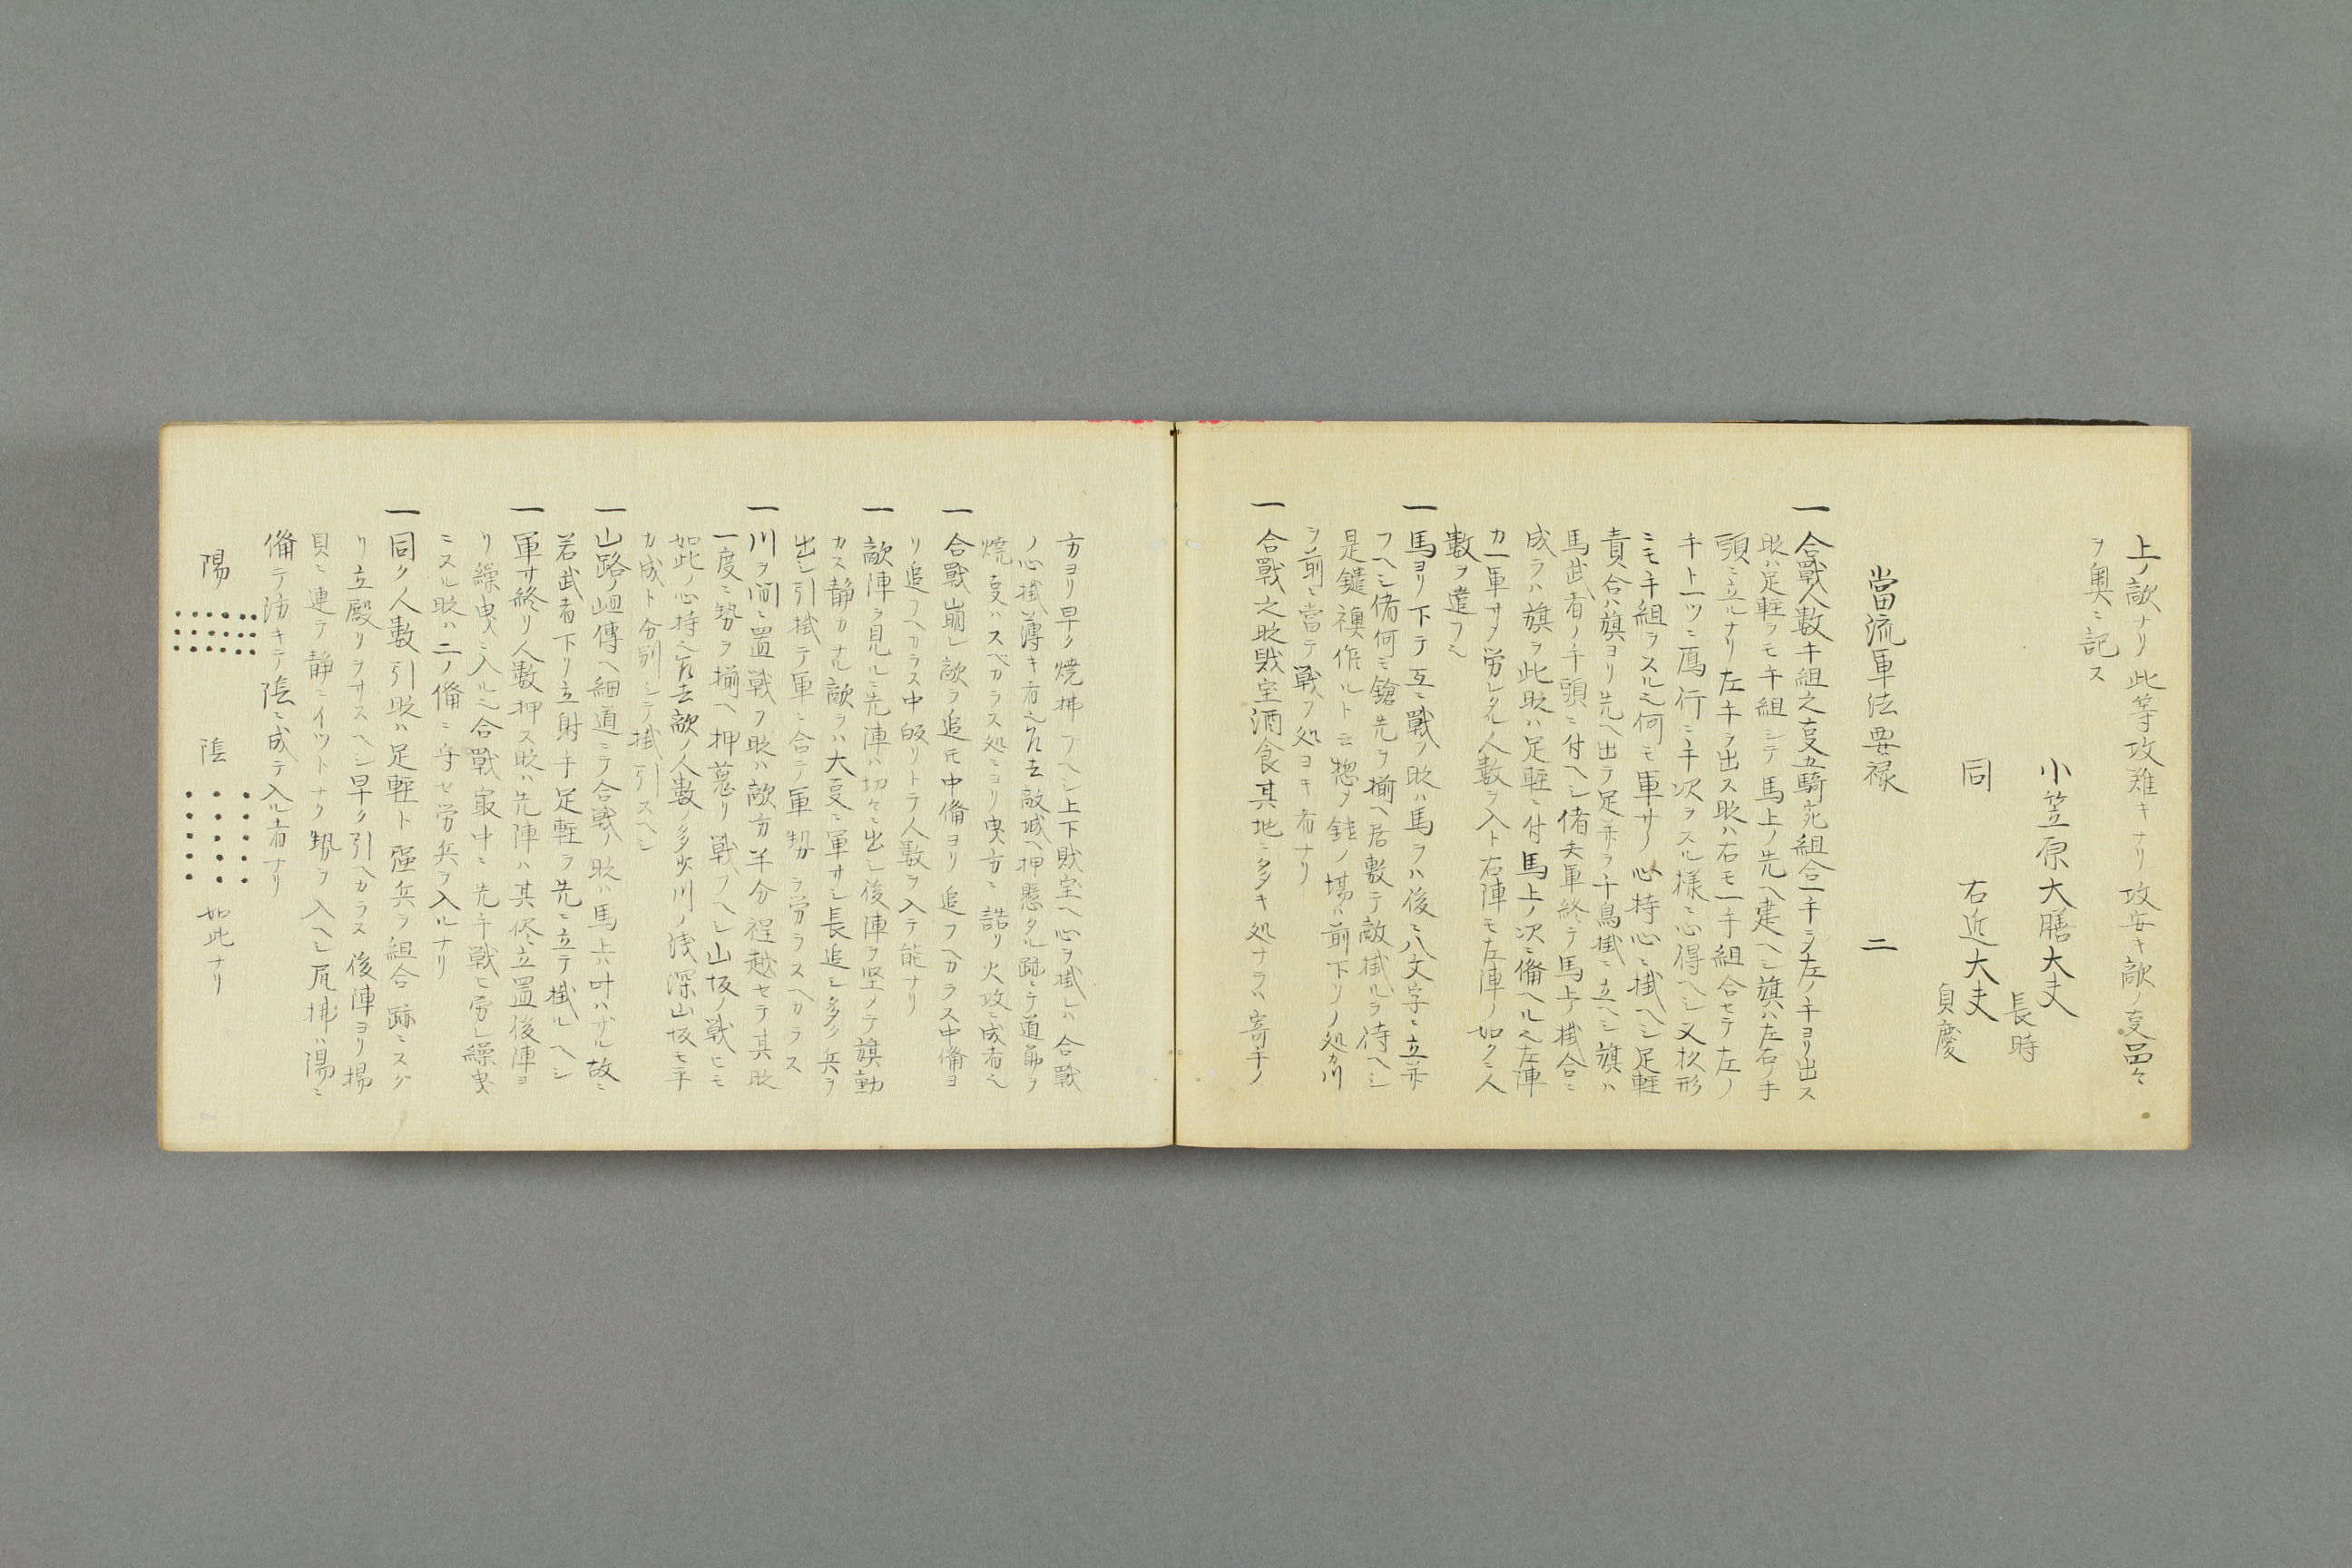 上ノ敵ナリ此等攻難キナリ攻安キ敵ノ事品々
ヲ奥ニ記ス
小笠原大膳大夫
長時
同 右近大夫
貞慶
當流軍法要禄 二
一合戰人數手組之事五騎宛組合一手ヲ左ノ手ヨリ出ス
時ハ足軽ヲモ手組シテ馬上ノ先ヘ建ヘシ旗ハ左右ノ手
頭ニ立ルナリ左手ヲ出ス時ハ右モ一手組合セテ左ノ
手ト一ツニ鳫行ニ手次ヲスル様ニ心得ヘシ又杉形
ニモ手組ヲスル也何モ軍サノ心持心ニ掛ヘシ足軽
責合ハ旗ヨリ先ヘ出テ足並ヲ千鳥掛ニ立ヘシ旗ハ
馬武者ノ手頭ニ付ヘシ偖夫軍終テ馬上ノ掛合ニ
成ラハ旗ヲ此時ハ足軽ニ付馬上ノ次ニ備ヘル也左陣
カ一軍サヲ労レタル人數ヲ入ト右陣モ左陣ノ如クニ人
數ヲ遣フ也
一馬ヨリ下テ互ニ戰ノ時ハ馬ヲハ後ニ八文字ニ立並
フヘシ偖何モ鎗先ヲ揃ヘ居敷テ敵掛ルヲ待ヘシ
是鑓襖作ルト云惣テ鎗ノ場ハ前下リノ処カ川
ヲ前ニ當テ戰フ処ヨキ者ナリ
一合戰之時戝宝酒食其地ニ多キ処ナラハ寄手ノ
方ヨリ早ク焼拂フヘシ上下財宝ヘ心ヲ掛レハ合戰
ノ心掛薄キ者也乍去敵城ヘ押懸タル跡ニテ道筋ヲ
焼事ハスベカラス処ニヨリ曳方ニ詰リ火攻ニ成者也
一合戰崩レ敵ヲ追モ中備ヨリ追フヘカラス中備ヨ
リ追フヘカラス中皈リトテ人數ヲ入テ能ナリ
一敵陣ヲ見ルニ先陣ハ切々ニ出シ後陣ヲ堅メテ旗動
カス静カナル敵ヲハ大事ニ軍サシ長追シ多ク兵ヲ
出シ引掛テ軍ニ合テ軍勢ヲ労ラスヘカラス
一川ヲ間ニ置戰フ時ハ敵方半分程越セテ其時
一度ニ勢ヲ揃ヘ押蒐リ戰フヘシ山坂ノ戰ヒモ
如此ノ心持也乍去敵ノ人數ノ多少川ノ浅深山坂モ平
カ成ト分別シテ掛引スヘシ
一山路ノ岨傳ヘ細道ニテ合戰ノ時ハ馬上ハ叶ハザル故ニ
若武者下リ立射手足軽ヲ先ニ立テ掛ルヘシ
一軍サ終リ人數押ス時ハ先陣ハ其侭立置後陣ヨ
リ繰曳ニ入ル也合戰最中ニ先手戰ヒ労レ繰曳
ニスル時ハ二ノ備ニ守セ労兵ヲ入ルナリ
一同ク人數引時ハ足軽ト强兵ヲ組合跡ニスグ
リ立殿リヲサスヘシ早ク引ヘカラス後陣ヨリ揚
貝ニ連テ静ニイツトナク勢ヲ入ヘシ尻拂ハ陽ニ
備テ防キテ陰ニ成テ入ル者ナリ
陽 陰 如此ナリ